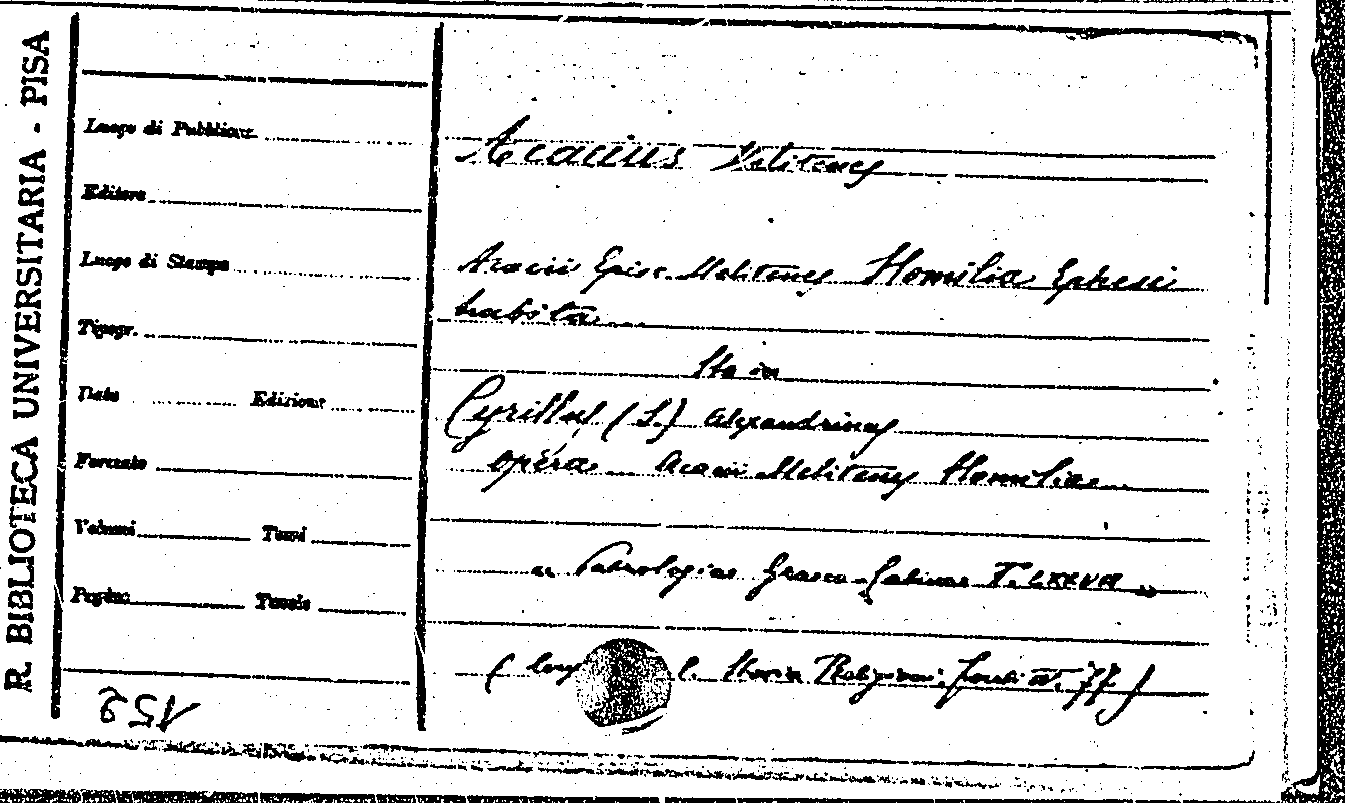 R. BIBLIOTECA UNIVERSITARIA - PISA
Luogo di Pubblicaz.
Editore
Luogo di Stampa
Tipogr.
Data Edizione
Formato
Volumi Tomi
Pagine Tavole
152
Acacius Melitenus
Acacii Episc. Melitenus Homilia Ephesi
habita
Sta in
Cyrillus (S.) Alexandrinus
Opera Acacii Melitenus Homilia
« Patrologiae Graeco-Latinae T. LXXVII »
( l. Storia Religioni. Fonti N. 77 )